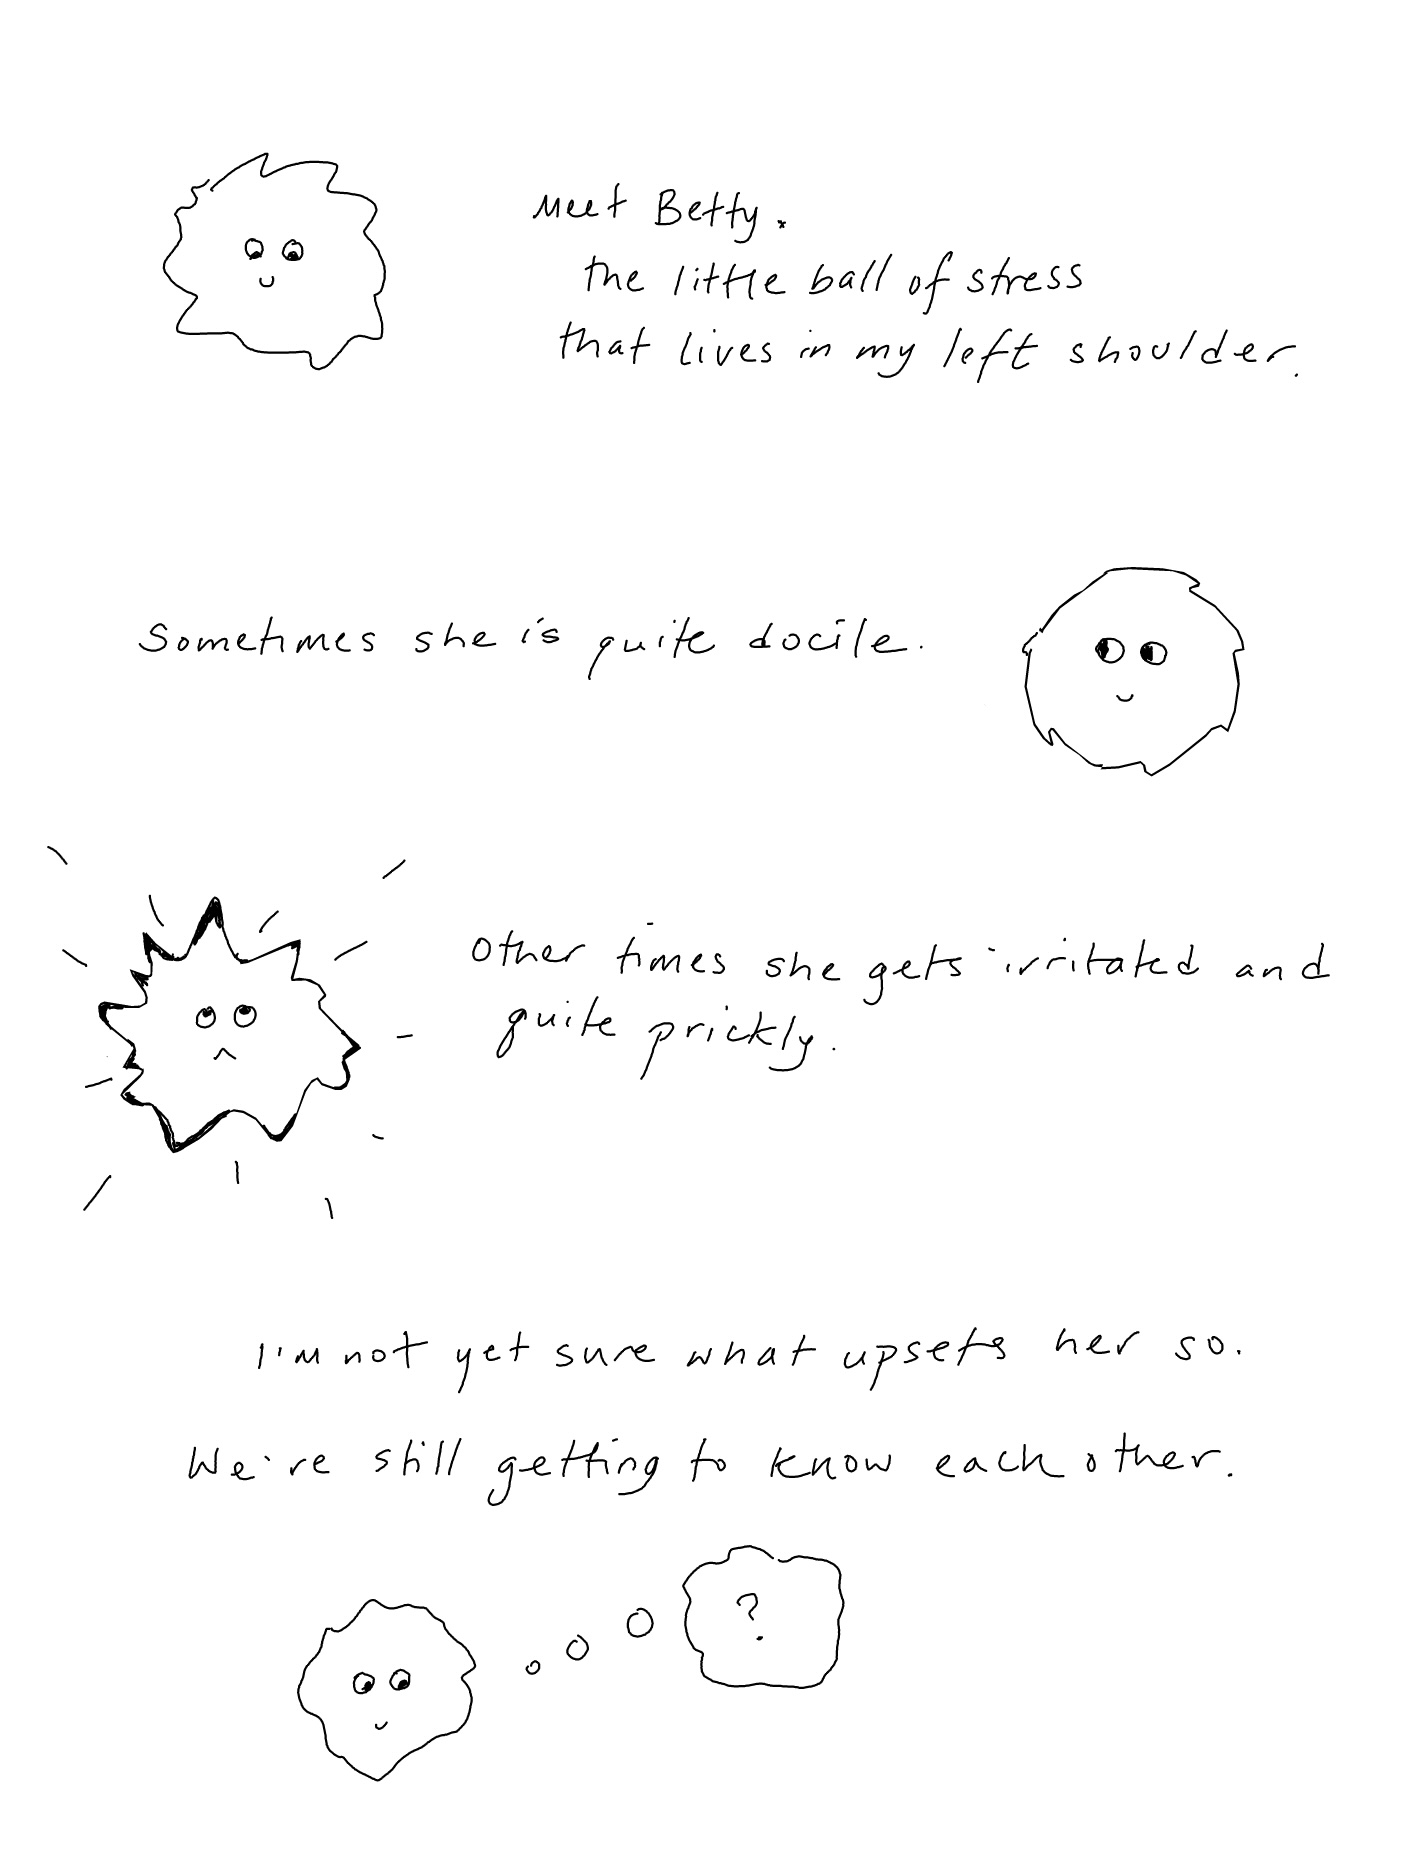 Meet Betty.
the little ball of stress
that lives in my left shoulder.
Sometimes she is quite docile.
Other times she gets irritated and
quite prickly.
I'm not yet sure what upsets her so.
We're still getting to know each other.
?